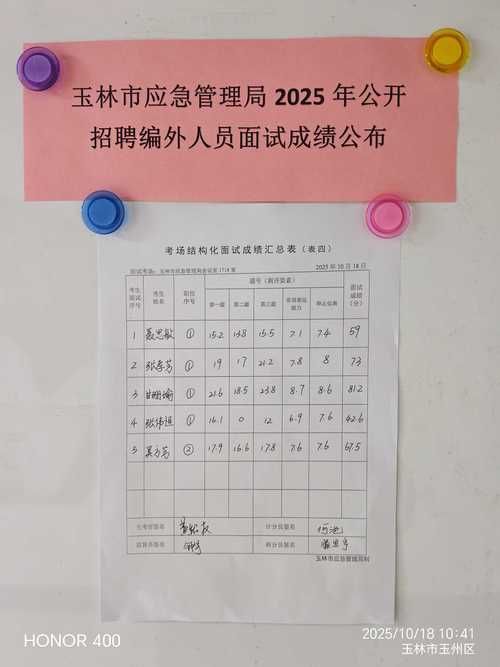 玉林市应急管理局 2025 年公开
招聘编外人员面试成绩公布
考场结构化面试成绩汇总表（表四）
面试考场：玉林市应急管理局会议室 1718 室 2025 年 10 月 18 日
考生面试序号 考生姓名 职位序号 题号（测评要素） 面试成绩（分）
第一题 第二题 第三题 语言表达能力 举止仪表
1 聂思敏 ① 15.2 13.8 15.5 7.1 7.4 59
2 张孝芳 ① 19 17 21.2 7.8 8 73
3 甘珊瑜 ① 21.6 18.5 23.8 8.7 8.6 81.2
4 张伟恒 ① 16.1 0 12 6.9 7.6 42.6
5 吴方芳 ② 17.9 16.6 17.8 7.6 7.6 67.5
主考官签名 计分员签名
监督员签名 核分员签名
玉林市应急管理局制
HONOR 400
2025/10/18 10:41
玉林市玉州区